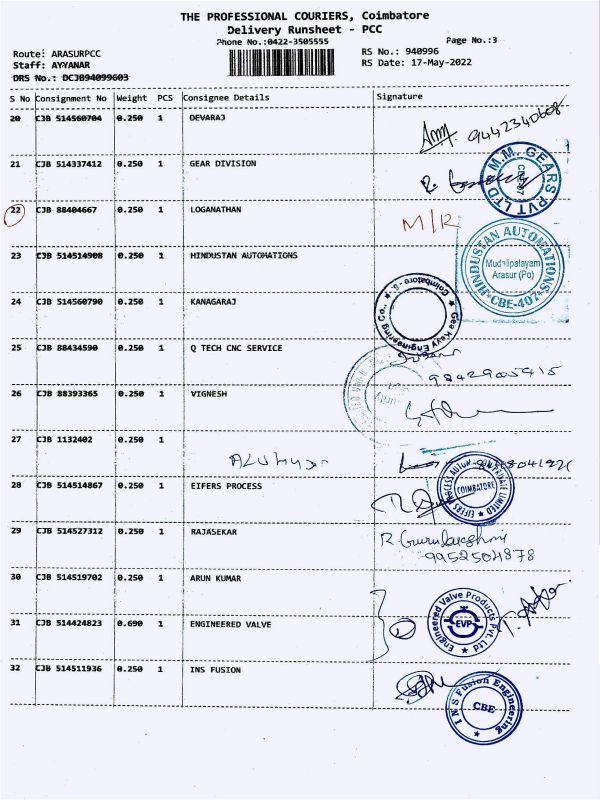 THE PROFESSIONAL COURIERS, Coimbatore
Delivery Runsheet - PCC
Phone No.:0422-3505555
Page No.:3
Route: ARASURPCC
RS No.: 940996
Staff: AYYANAR
RS Date: 17-May-2022
DRS No.: DCJB94099603
S No Consignment No Weight PCS Consignee Details Signature
20 CJB 514560704 0.250 1 DEVARAJ
9442340608
21 CJB 514337412 0.250 1 GEAR DIVISION
M.M. GEARS PVT LTD
22 CJB 88404667 0.250 1 LOGANATHAN
M/R
23 CJB 514514908 0.250 1 HINDUSTAN AUTOMATIONS
HINDUSTAN AUTOMATIONS
Mudalipalayam
Arasur (Po)
CBE-407
24 CJB 514560790 0.250 1 KANAGARAJ
Gea Keyy Engineering Co., Coimbatore - 6.
25 CJB 88434590 0.250 1 Q TECH CNC SERVICE
26 CJB 88393365 0.250 1 VIGNESH
27 CJB 1132402 0.250 1
28 CJB 514514867 0.250 1 EIFERS PROCESS
EIFERS PROCESS AUTOMATION PRIVATE LIMITED
COIMBATORE
29 CJB 514527312 0.250 1 RAJASEKAR
R Gurulakshmi
9952504878
30 CJB 514519702 0.250 1 ARUN KUMAR
31 CJB 514424823 0.690 1 ENGINEERED VALVE
Engineered Valve Products Pvt. Ltd
EVP
32 CJB 514511936 0.250 1 INS FUSION
INS Fusion Engineering
CBE